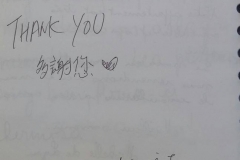 THANK YOU
多謝您